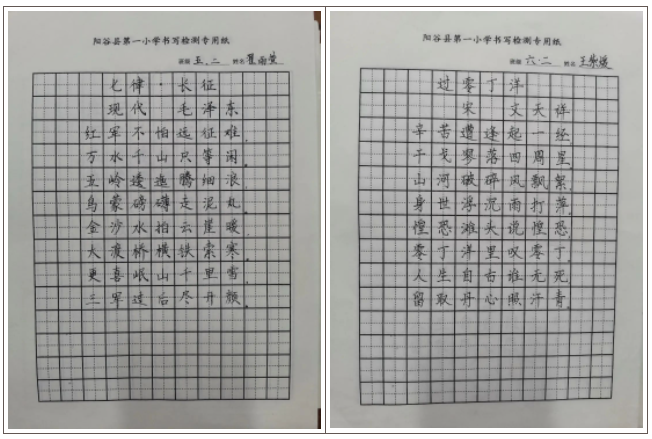 阳谷县第一小学书写检测专用纸
班级 五.二 姓名
七律·长征
现代 毛泽东
红军不怕远征难,
万水千山只等闲。
五岭逶迤腾细浪,
乌蒙磅礴走泥丸。
金沙水拍云崖暖,
大渡桥横铁索寒。
更喜岷山千里雪,
三军过后尽开颜。
阳谷县第一小学书写检测专用纸
班级 六.二 姓名
过零丁洋
宋 文天祥
辛苦遭逢起一经
干戈寥落四周星
山河破碎风飘絮
身世浮沉雨打萍
惶恐滩头说惶恐
零丁洋里叹零丁
人生自古谁无死
留取丹心照汗青。